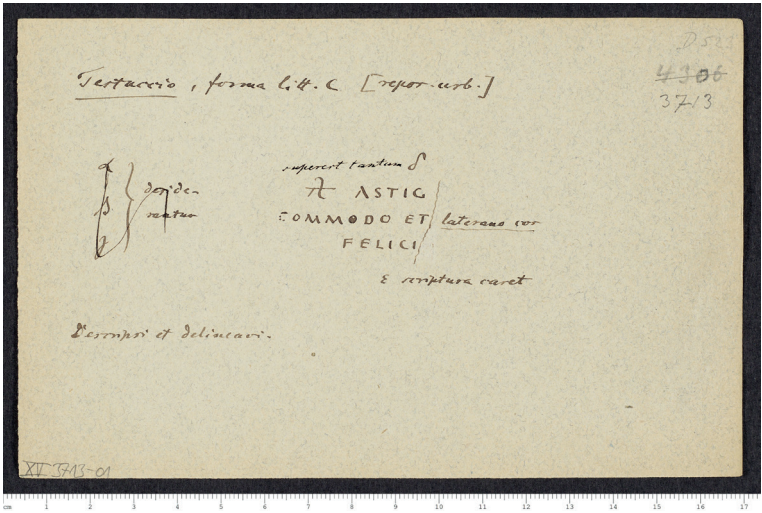 D 523
4306
3713
Testaccio, forma litt. C [repor. urb.]
superest tantum δ
α
β
γ
deside-
rantur
ASTIG
COMMODO ET laterano cos
FELICI
ε scriptura caret
Descripsi et delineavi.
XV 3713-01
cm 1 2 3 4 5 6 7 8 9 10 11 12 13 14 15 16 17